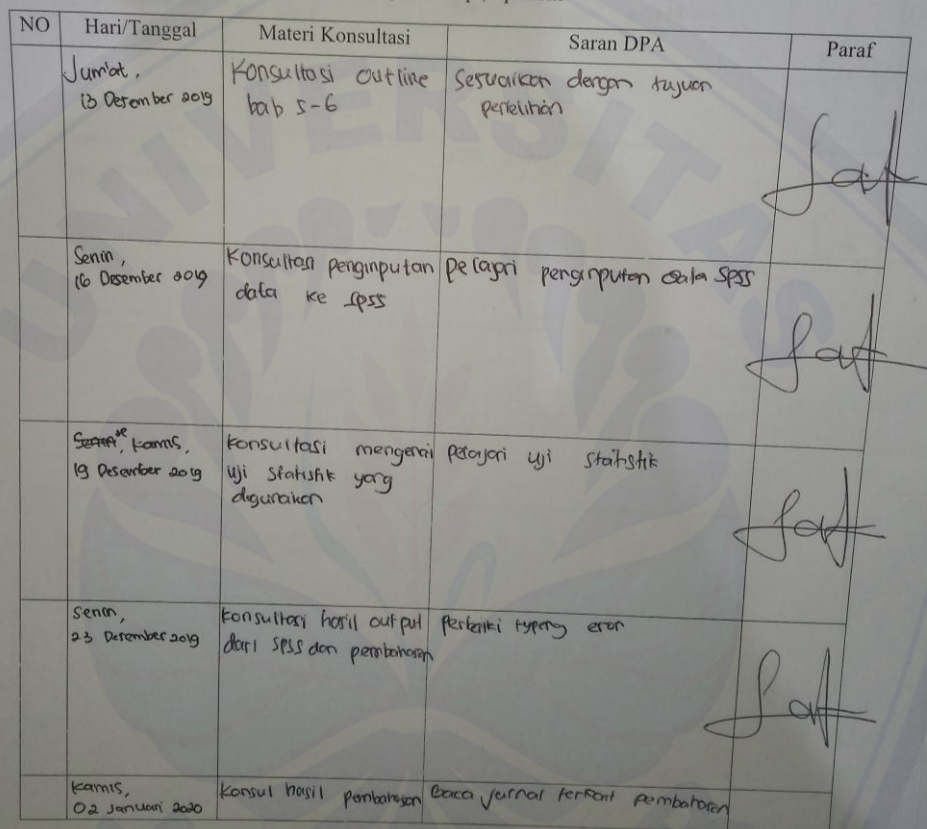 NO Hari/Tanggal Materi Konsultasi Saran DPA Paraf
Jum'at,
13 Desember 2019
Konsultasi outline
bab 5-6
Sesuaikan dengan tujuan
penelitian
Senin,
16 Desember 2019
Konsultasi penginputan
data ke SPSS
Pelajari penginputan SPSS
Kamis,
19 Desember 2019
Konsultasi mengenai
uji statistik yang
digunakan
Pelajari uji statistik
Senin,
23 Desember 2019
Konsultasi hasil output
dari SPSS dan pembahasan
Perbaiki typing eror
Kamis,
02 Januari 2020
Konsul hasil pembahasan
Baca jurnal terkait pembahasan
UNIVERSITAS